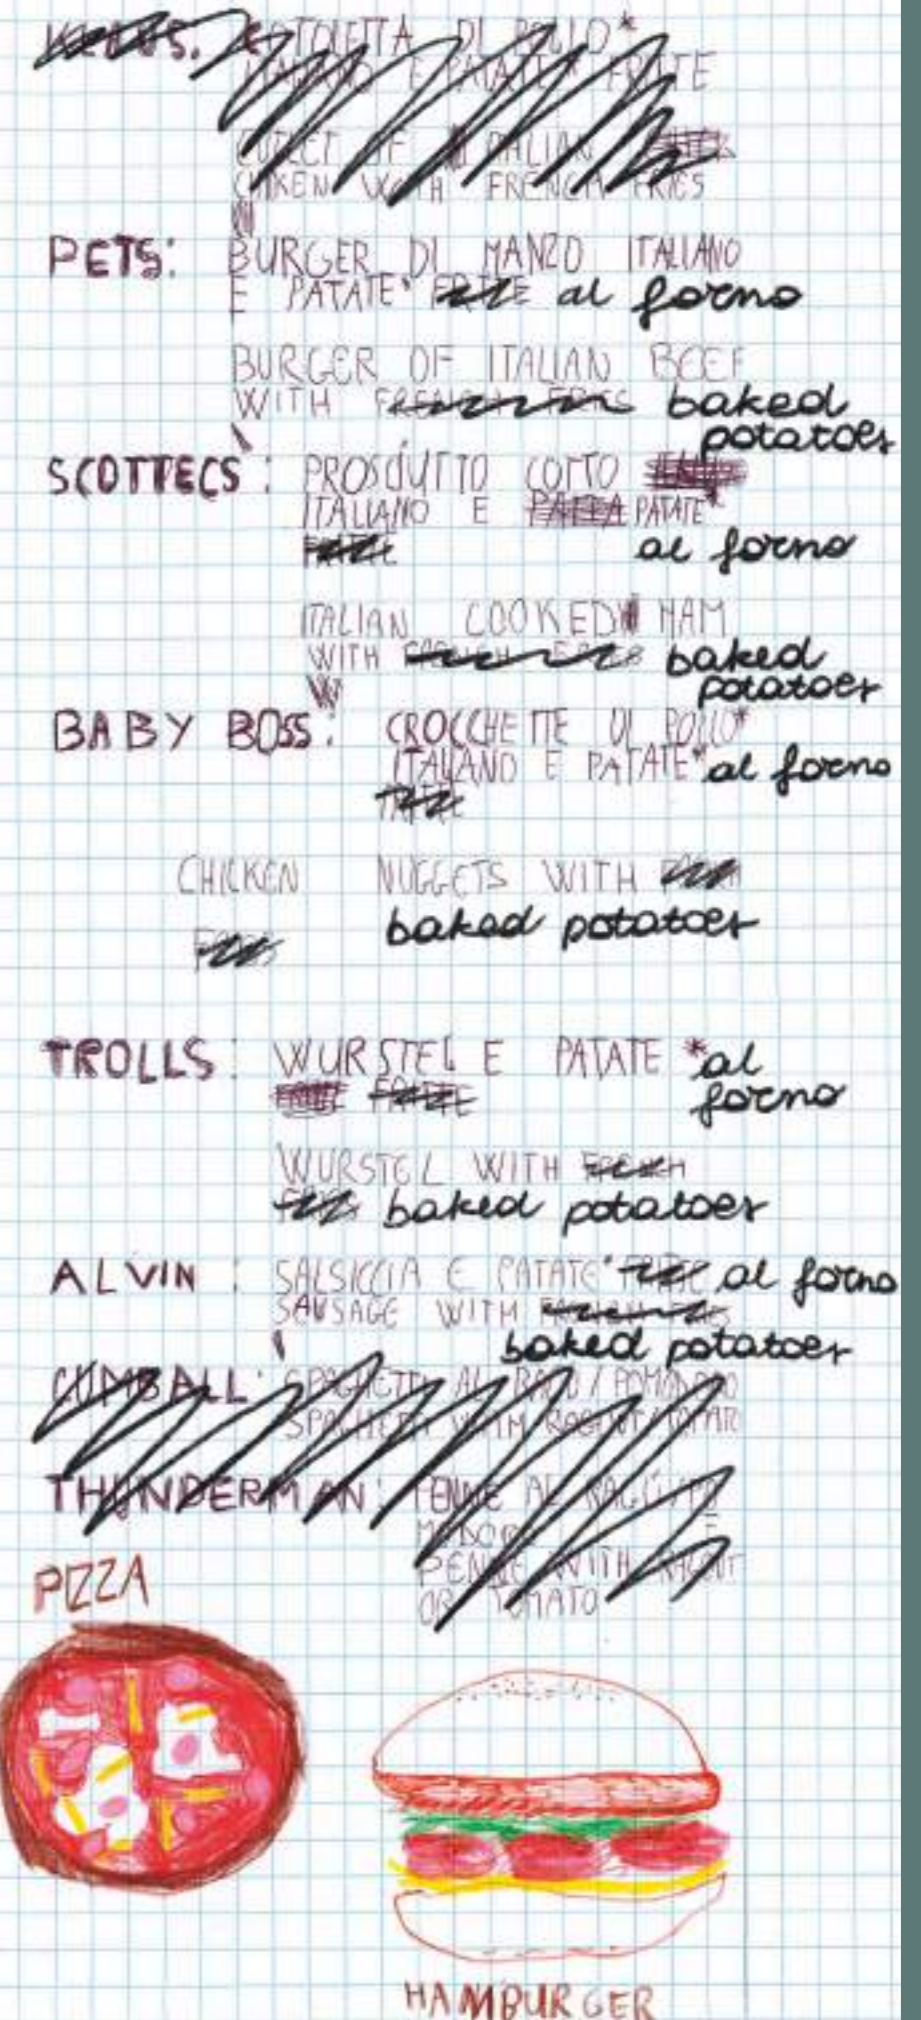 CATOLETTA DI POLLO*
E PATATE* FRITTE
OF ITALIAN
CHIKEN WITH FRENCH FRIES
PETS: BURGER DI MANZO ITALIANO
E PATATE* al forno
BURGER OF ITALIAN BEEF
WITH baked
potatoes
SCOTTECS: PROSCIUTTO COTTO
ITALIANO E PATATE*
al forno
ITALIAN COOKED HAM
WITH baked
potatoes
BABY BOSS: CROCCHETTE DI POLLO*
ITALIANO E PATATE* al forno
CHICKEN NUGGETS WITH
baked potatoes
TROLLS: WURSTEL E PATATE *al
forno
WURSTEL WITH
baked potatoes
ALVIN: SALSICCIA E PATATE* al forno
SAUSAGE WITH
baked potatoes
GUMBALL: SPAGHETTI AL RAGÙ / POMODORO
SPAGHETTI WITH
THUNDERMAN: PENNE AL RAGÙ/PO
MODORO
PENNE WITH
OR TOMATO
PIZZA
HAMBURGER